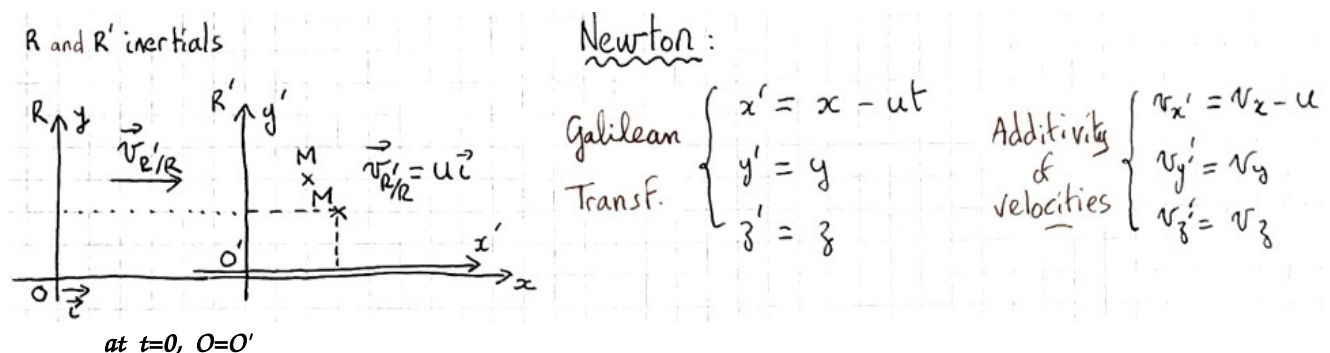 R and R' inertials
R y
R' y'
v⃗R'/R
M
v⃗R'/R = u i⃗
M
O'
x'
O
i⃗
x
at t=0, O=O'
Newton :
Galilean
Transf.
x' = x - ut
y' = y
z' = z
Additivity
of
velocities
vx' = vx - u
vy' = vy
vz' = vz